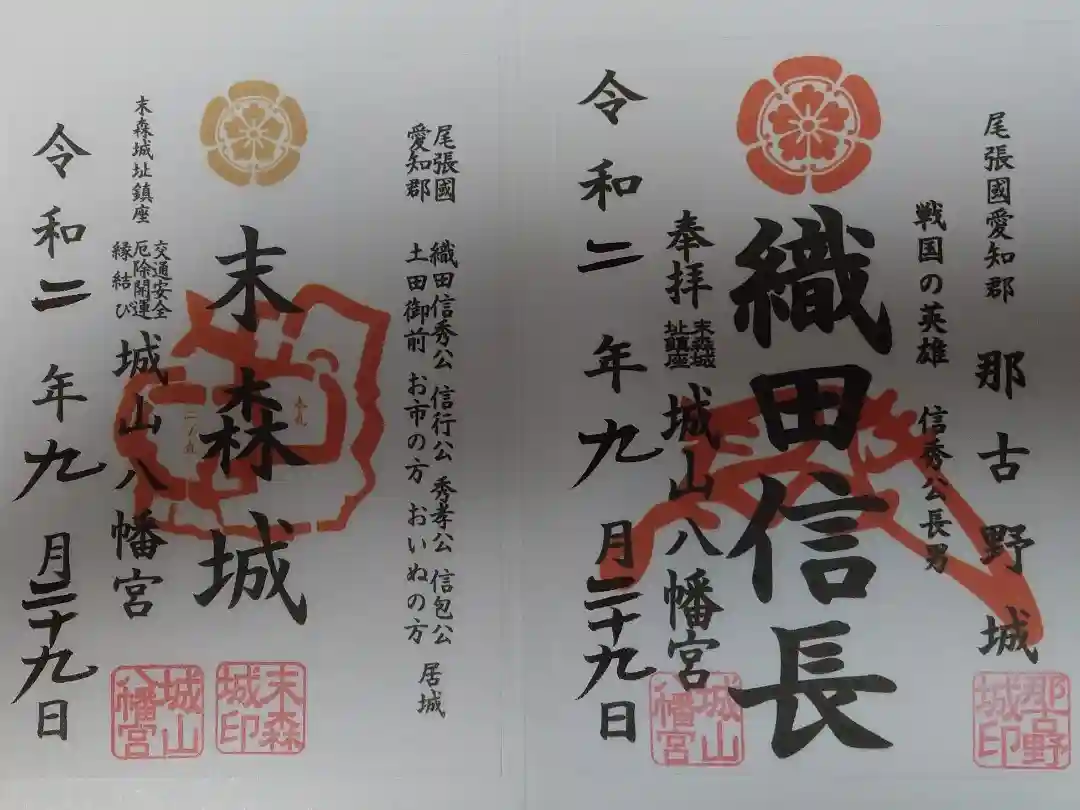 尾張國愛知郡
那古野城
那古野城印
戦国の英雄
信秀公長男
織田信長
奉拝
末森城址鎮座
城山八幡宮
城山八幡宮
令和二年九月二十九日
尾張國愛知郡
織田信秀公 信行公 秀孝公 信包公
土田御前 お市の方 おいぬの方
居城
末森城
本丸
二ノ丸
末森城印
末森城址鎮座
交通安全
厄除開運
縁結び
城山八幡宮
城山八幡宮
令和二年九月二十九日